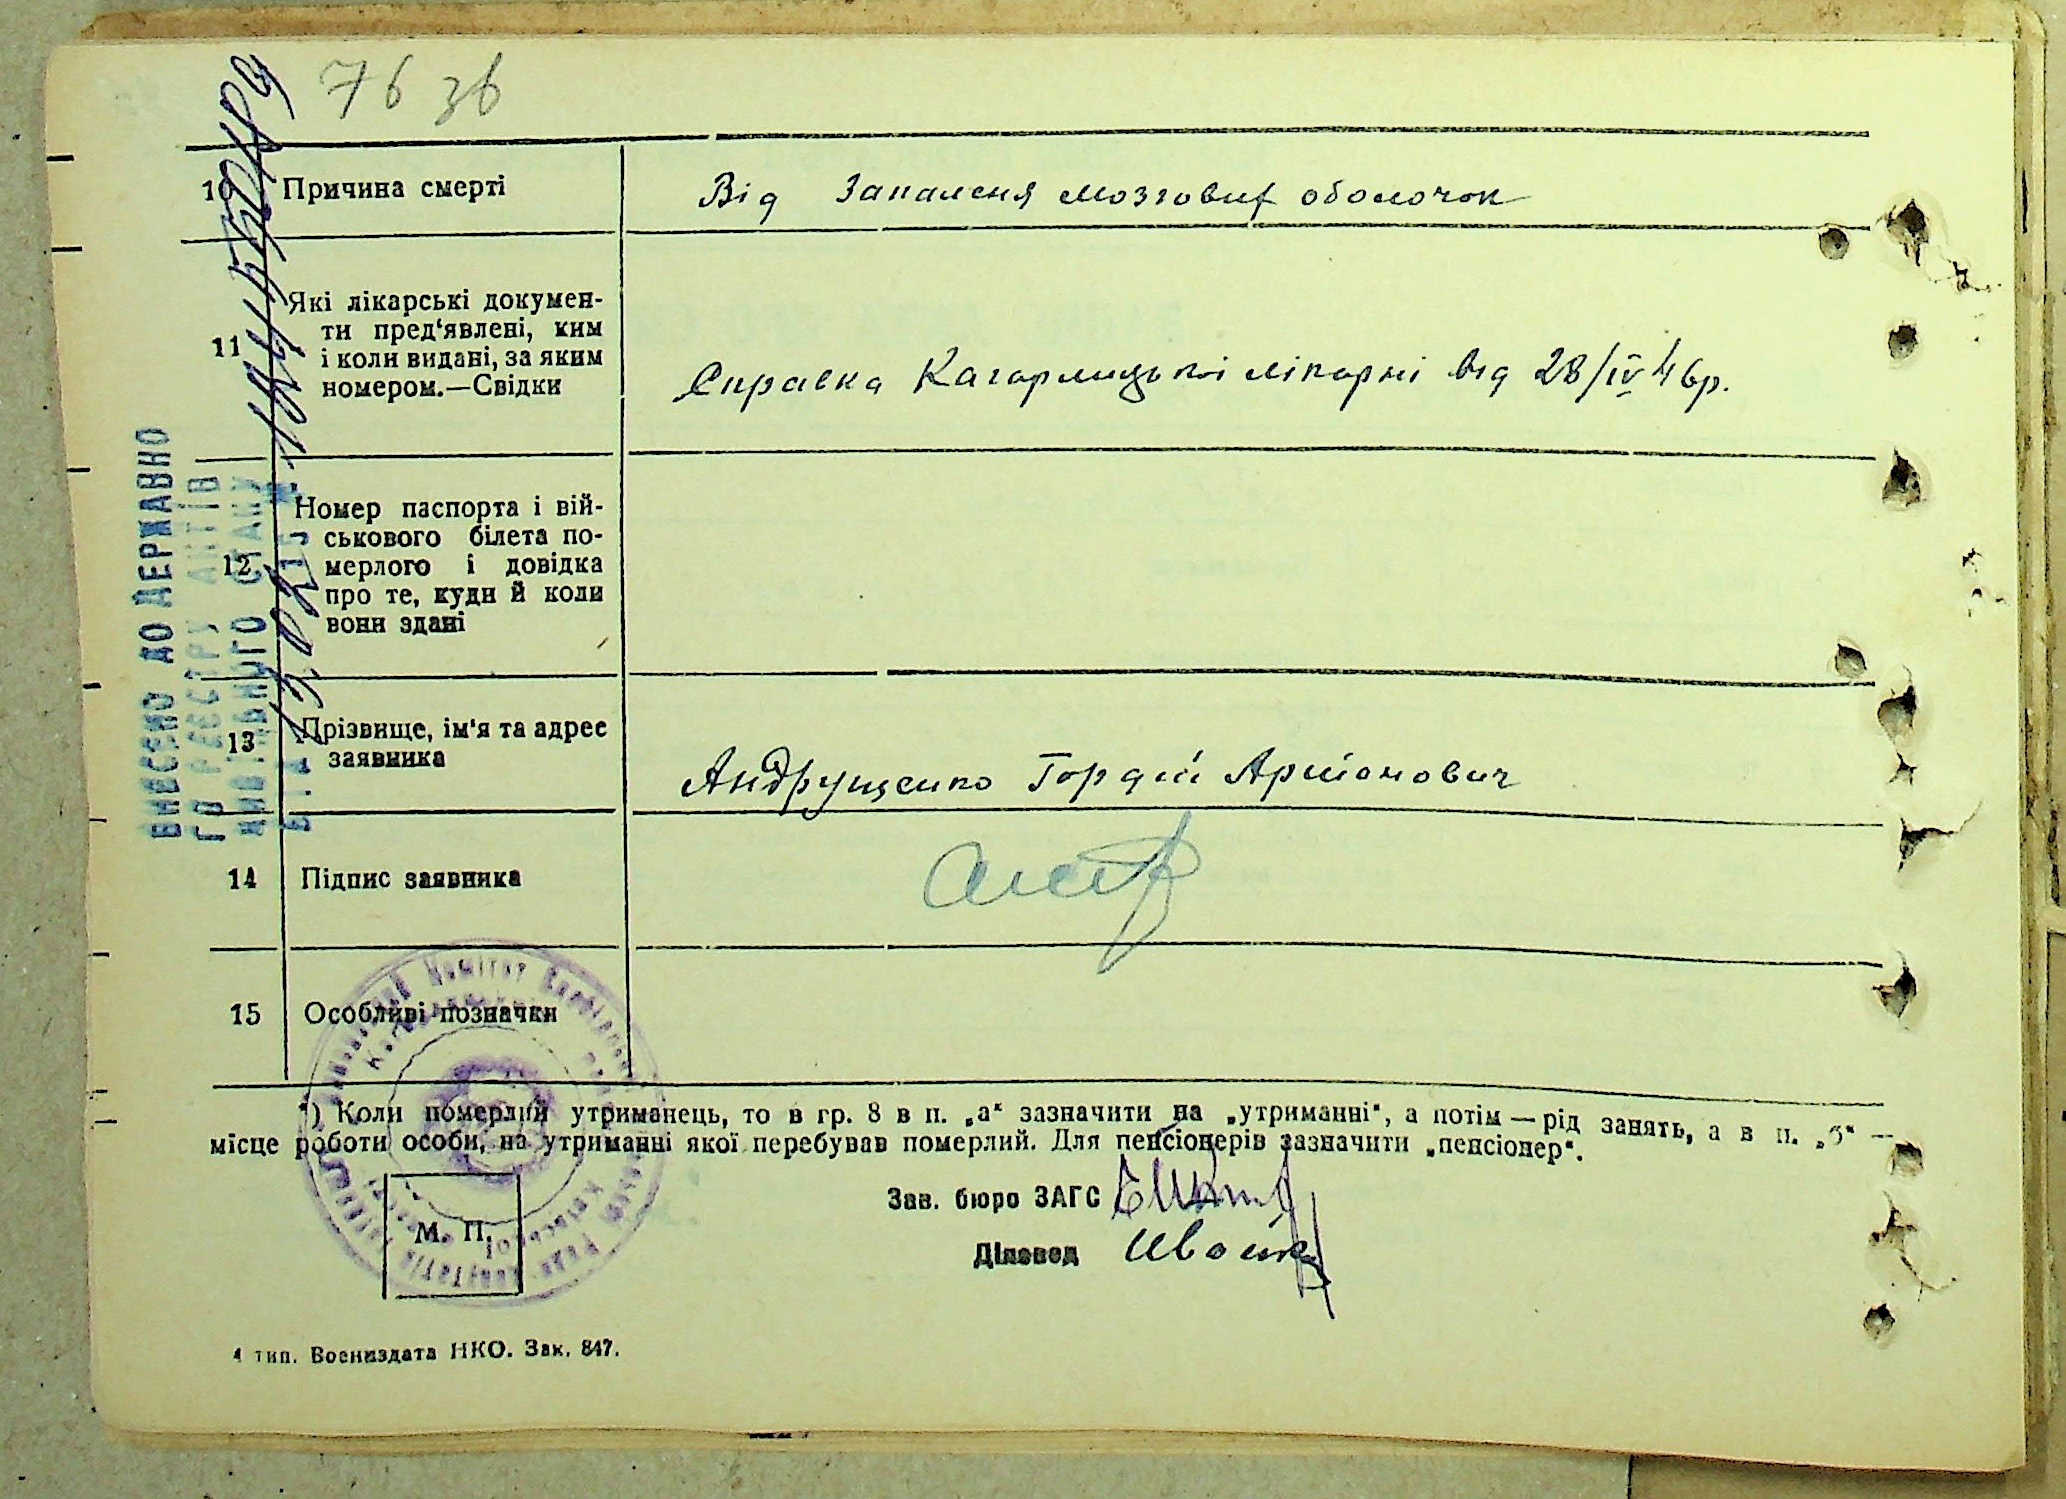 76 зв
10 Причина смерті
Від Запаленя мозговиг оболочок
11 Які лікарські докумен-
ти пред'явлені, ким
і коли видані, за яким
номером.—Свідки
Справка Кагарлицької лікарні від 28/IV 46р.
12 Номер паспорта і вій-
ськового білета по-
мерлого і довідка
про те, куди й коли
вони здані
13 Прізвище, ім'я та адрес
заявника
Андрущенко Гордій Арионович
14 Підпис заявника
15 Особливі позначки
*) Коли померлий утриманець, то в гр. 8 в п. „а“ зазначити на „утриманні“, а потім — рід занять, а в п. „б“ —
місце роботи особи, на утриманні якої перебував померлий. Для пенсіонерів зазначити „пенсіонер“.
Зав. бюро ЗАГС
Діловод
М. П.
4 тип. Воениздата НКО. Зак. 847.
ВНЕСЕНО ДО ДЕРЖАВНО
ГО РЕЄСТРУ АКТІВ
ЦИВІЛЬНОГО СТАНУ